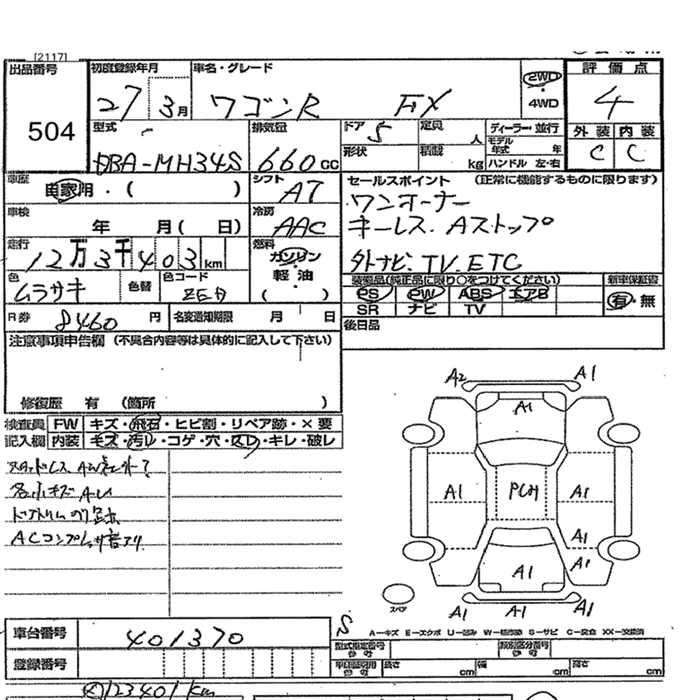 [2117]
出品番号
504
初度登録年月
27 3月
車名・グレード
ワゴンR FX
2WD
・
4WD
評価点
4
型式
DBA-MH34S
排気量
660cc
ドア
5
定員
人
ディーラー・並行
モデル年式 年
形状
積載
kg
ハンドル 左・右
外装 内装
C C
車歴
自家用・( )
シフト
AT
セールスポイント (正常に機能するものに限ります)
ワンオーナー
キーレス.Aストップ
外ナビ.TV.ETC
車検
年 月( 日)
冷房
AAC
走行
12万3千403km
燃料
ガソリン
軽・油
( )
色
ムラサキ
色替
色コード
装備品(純正品に限り○をつけてください)
PS PW ABS エアB
SR ナビ TV
新車保証書
有・無
R券
8460円
名変通知期限 月 日
後日品
注意事項申告欄 (不具合内容等は具体的に記入して下さい)
修復歴 有 (箇所 )
検査員
記入欄
FW キズ・飛石・ヒビ割・リペア跡・×要
内装 キズ・汚レ・コゲ・穴・スレ・キレ・破レ
各小キズ A.U
ACコンプレッサ音アリ
A2 A1
A1
A1 PCH A1
A1
A1 A1
A1 A1 A1
スペア
S
車台番号
401370
登録番号
A-キズ E-エクボ U-凹み W-補修跡 S-サビ C-腐食 XX-交換済
型式指定番号
参考
類別区分番号
参考
長さ cm
幅 cm
高さ cm
123401km